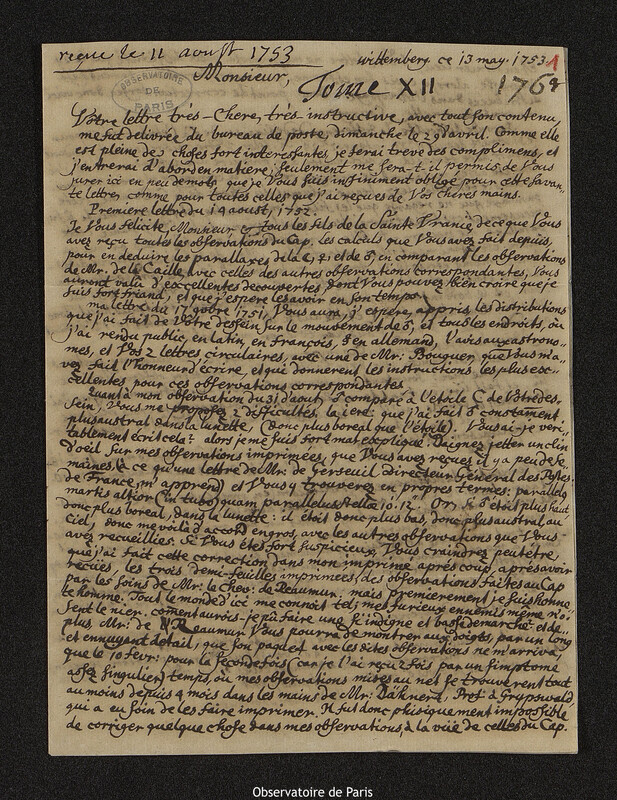 reçue le 11 aoust 1753
Wittemberg, ce 13 may. 1753 1
Monsieur,
OBSERVATOIRE DE PARIS
Tome XII 176
Votre lettre très-Chere, très instructive, avec tout son contenu,
me fut delivrée du bureau de poste, dimanche le 29 d'avril. Comme elle
est pleine de choses fort interessantes, je ferai treve des complimens, et
j'entrerai d'abord en matiere, seulement me sera-t-il permis de Vous
jurer ici en peu de mots, que je Vous suis infiniment obligé pour cette savan-
te lettre, comme pour toutes celles que j'ai reçues de Vos Cheres mains.
Premiere lettre du 14 aoust, 1752.
Je Vous felicite, Monsieur et tous les fils de la Sainte Vranie, de ce que Vous
avez reçu toutes les observations du Cap. les calculs que Vous avez fait depuis,
pour en deduire les parallaxes de la ☾, ♀, et de ♂, en comparant les observations
de Mr. de la Caille, avec celles des autres observations correspondantes, Vous
auront valu d'excellentes decouvertes, dont Vous pouvez bien croire que je
suis fort friand, et que j'espere les avoir en son temps.
ma lettre du 17 9bre 1751, Vous aura, j'espere, appris, les distributions
que j'ai fait de Votre dessein sur le mouvement de ♂, et tous les endroits, où
j'ai rendu public, en latin, en françois, & en allemand, l'avis aux astrono-
mes, et Vos 2 lettres circulaires, avec une de Mr. Bouguer, que Vous m'a-
vez fait l'honneur d'écrire, et qui donnerent les instructions les plus exc-
cellentes, pour ces observations correspondantes.
Quant à mon observation du 31 d'aout, ♂ comparé à l'étoile C de Votre des-
sein, Vous me proposez 2 difficultés, la 1ere: que j'ai fait ♂ constament
plus austral dans la lunette, (donc plus boreal que l'étoile). Vous ai-je veri-
tablement écrit cela? alors je me suis fort mal expliqué. Daignez jetter un clin
d'oeil sur mes observations imprimées, que Vous avez reçues il y a peu de se-
maines, (à ce qu'une lettre de Mr. de Gerseuil Directeur General des Postes
de France, m'apprend) et Vous y trouverez en propres termes: parallelus
martis altior (in tubo) quam parallelus stellæ 10.12". Or si ♂ étoit plus haut
donc plus boreal, dans la lunette: il étoit donc plus bas, donc plus austral au
Ciel, donc me voilà d'accord en gros, avec les autres observations que Vous
avez recueillies. Si Vous étes fort suspicieux, Vous craindrez peutetre,
que j'ai fait cette correction dans mon imprimé après coup, après avoir
recües, les trois demi-feuilles imprimées, des observations faites au Cap
par les soins de Mr. le Chev. de Reaumur. mais premierement je suis hone-
te homme. Tout le monde d'ici me connoit tel; mes furieux ennemis même n'o-
sent le nier. coment aurois-je pû faire une si indigne et basse demarche? et de-
plus Mr: de Reaumur Vous pourra demontrer aux doigts, par un long
et ennuyant detail, que son paquet avec les dites observations ne m'arriva
que le 10 fevr: pour la seconde fois (car je l'ai reçu 2 fois par un simptome
assez singulier) temps, où mes observations mises au net se trouverent tout
au moins depuis 4 mois dans les mains de Mr: Dähnert, Prof. à Grypswald
qui a eu soin de les faire imprimer. Il fut donc phisiquement impossible
de corriger quelque chose dans mes observations, à la vuë de celles du Cap.
Observatoire de Paris